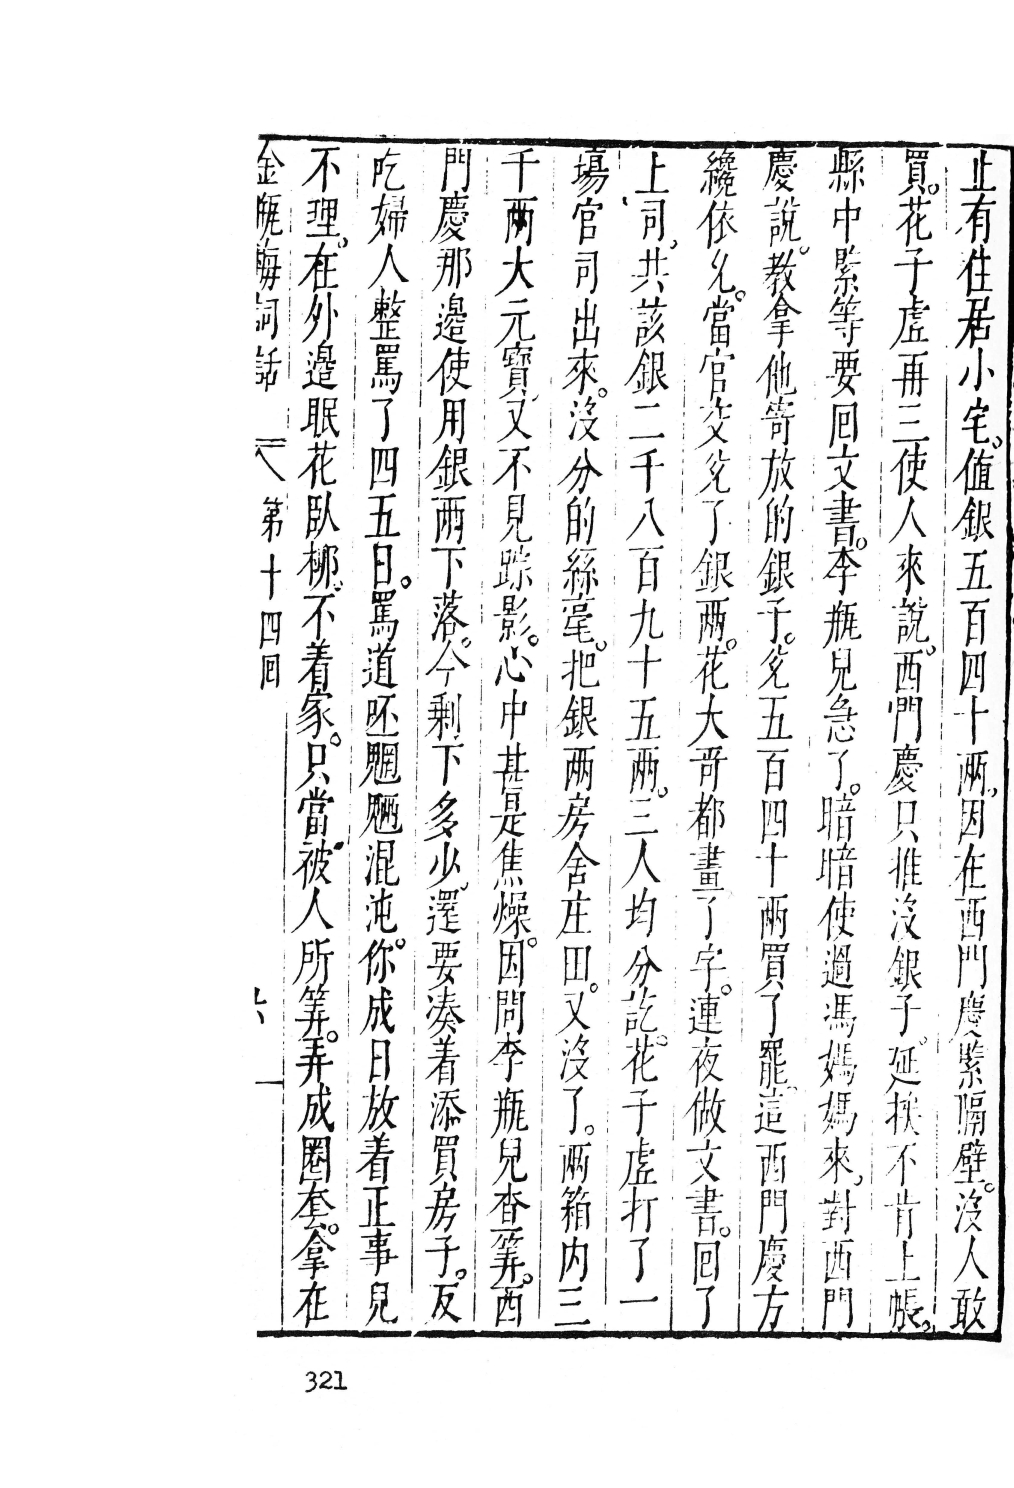 止有住居小宅。值銀五百四十兩。因在西門慶緊隔壁。沒人敢
買。花子虛再三使人來說。西門慶只推沒銀子。延挨不肯上帳。
縣中緊等要囘文書。李瓶兒急了。暗暗使過馮媽媽來。對西門
慶說。教拿他寄放的銀子。兌五百四十兩買了罷。這西門慶方
纔依允。當官交兌了銀兩。花大哥都畫了字。連夜做文書。回了
上司。共該銀二千八百九十五兩。三人均分訖。花子虛打了一
塲官司出來。沒分的絲毫。把銀兩房舍庄田。又沒了。兩箱內三
千兩大元寶。又不見踪影。心中甚是焦燥。因問李瓶兒查筭。西
門慶那邉使用銀兩下落。今剩下多少。還要凑着添買房子。反
吃婦人整罵了四五日。罵道呸魍魎混沌。你成日放着正事兒
不理。在外邉眠花臥柳。不着家。只當被人所筭。弄成圈套。拿在
金瓶梅詞話 第十四囘
321